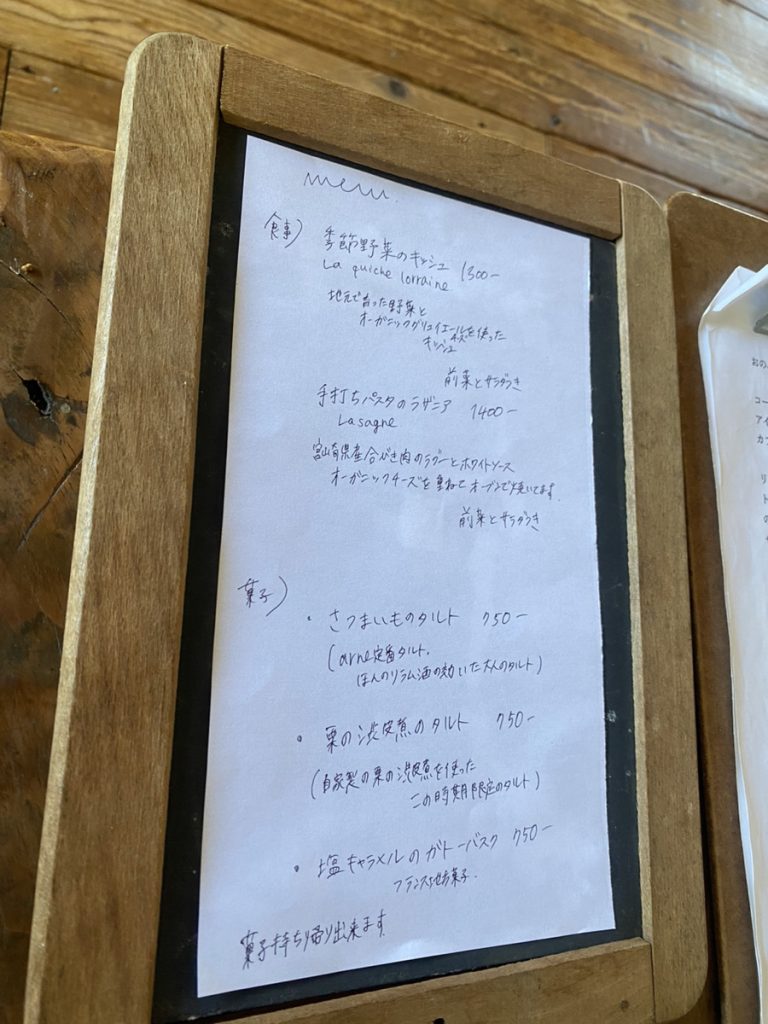 menu.
食事)
季節野菜のキッシュ 1300-
La quiche lorraine
地元で育った野菜と
オーガニックグリュイエールチーズを使った
キッシュ
前菜とサラダつき
手打ちパスタのラザニア 1400-
Lasagne
宮崎県産合びき肉のラグーとホワイトソース
オーガニックチーズを重ねてオーブンで焼いてます。
前菜とサラダつき
菓子)
・さつまいものタルト 750-
(arne定番タルト。
ほんのりラム酒の効いた大人のタルト)
・栗の渋皮煮のタルト 750-
(自家製の栗の渋皮煮を使った
この時期限定のタルト)
・塩キャラメルのガトーバスク 750-
フランス地方菓子。
菓子持ち帰り出来ます